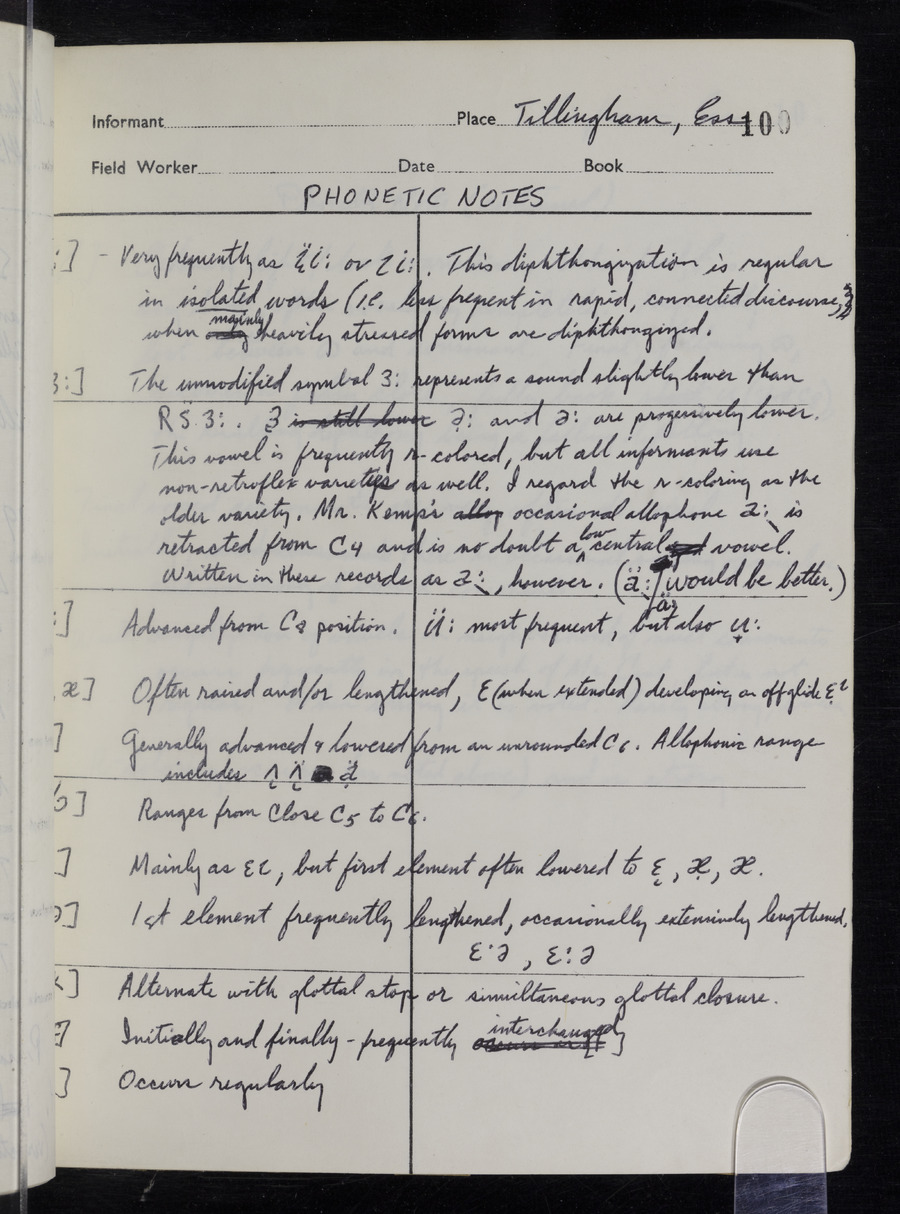 Informant Place Tillingham, Ess 100
Field Worker Date Book
PHONETIC NOTES
:] - Very frequently as ɪ̈i: or ɪi: . This diphthongization is regular
in isolated words (i.e. less frequent in rapid, connected discourse,
when mainly heavily stressed forms are diphthongized.
ɜ:] The unmodified symbol ɜ: represents a sound slightly lower than
R.S. ɜ: . ɜ̞ is still lower ə̞: and ə: are progressively lower.
This vowel is frequently r-colored, but all informants use
non-retroflex varieties as well. I regard the r-coloring as the
older variety. Mr. Kemp's allop occasional allophone a: is
retracted from C4 and is no doubt a low central vowel.
Written in these records as a: , however. (ä: would be better.)
:] Advanced from C8 position. ü: most frequent, but also u̟:
, æ] Often raised and/or lengthened, ɛ (when extended) developing an offglide ɛɪ
] Generally advanced & lowered from an unrounded C6. Allophonic range
includes ʌ̞ ʌ̞̈
] Ranges from close C5 to C6.
] Mainly as ɛɪ, but first element often lowered to ɛ̞, æ̞, æ.
ə] 1st element frequently lengthened, occasionally extensively lengthened.
ɛ·ə , ɛ:ə
] Alternate with glottal stop or similtaneous glottal closure.
] Initially and finally - frequently interchanged
] Occurs regularly